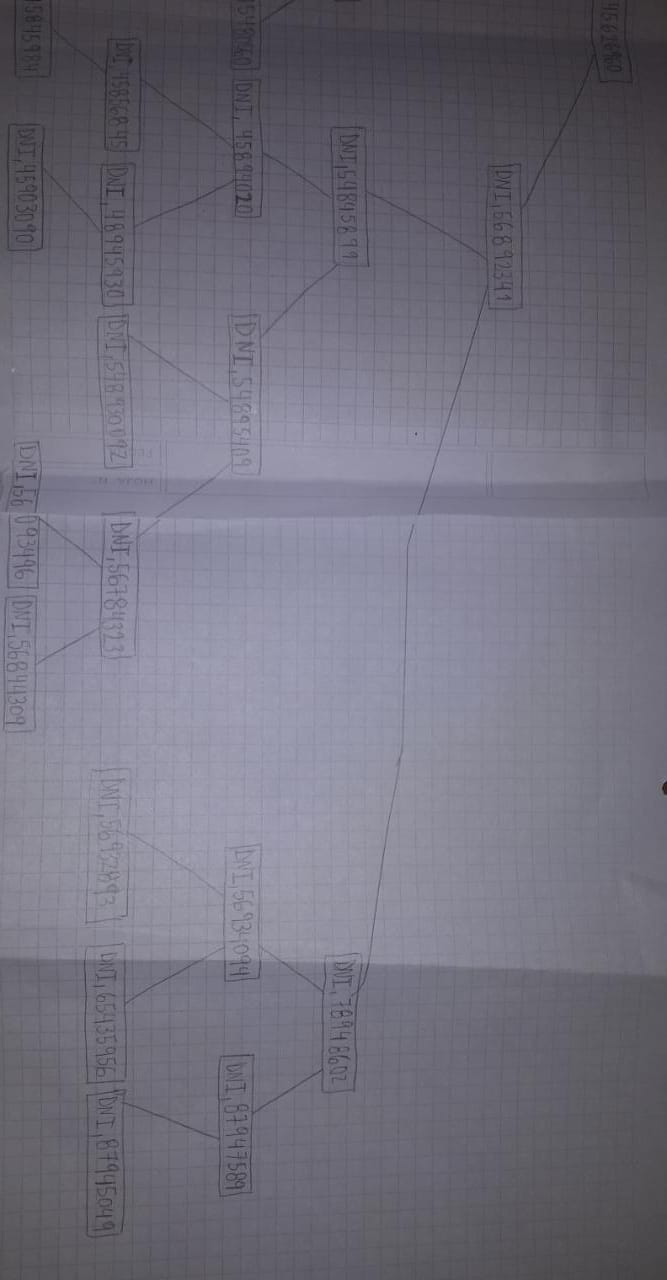 45626960
DNI,56892341
DNI,54845899
DNI,78948602
5480960
DNI, 45894020
DNI,54895409
DNI,56934094
DNI,87947589
DNI,45856845
DNI,48945930
DNI,548930092
DNI,56784323
DNI,56932893
DNI,65435956
DNI,87945049
5845984
DNI,45903090
DNI,56093496
DNI,56844309